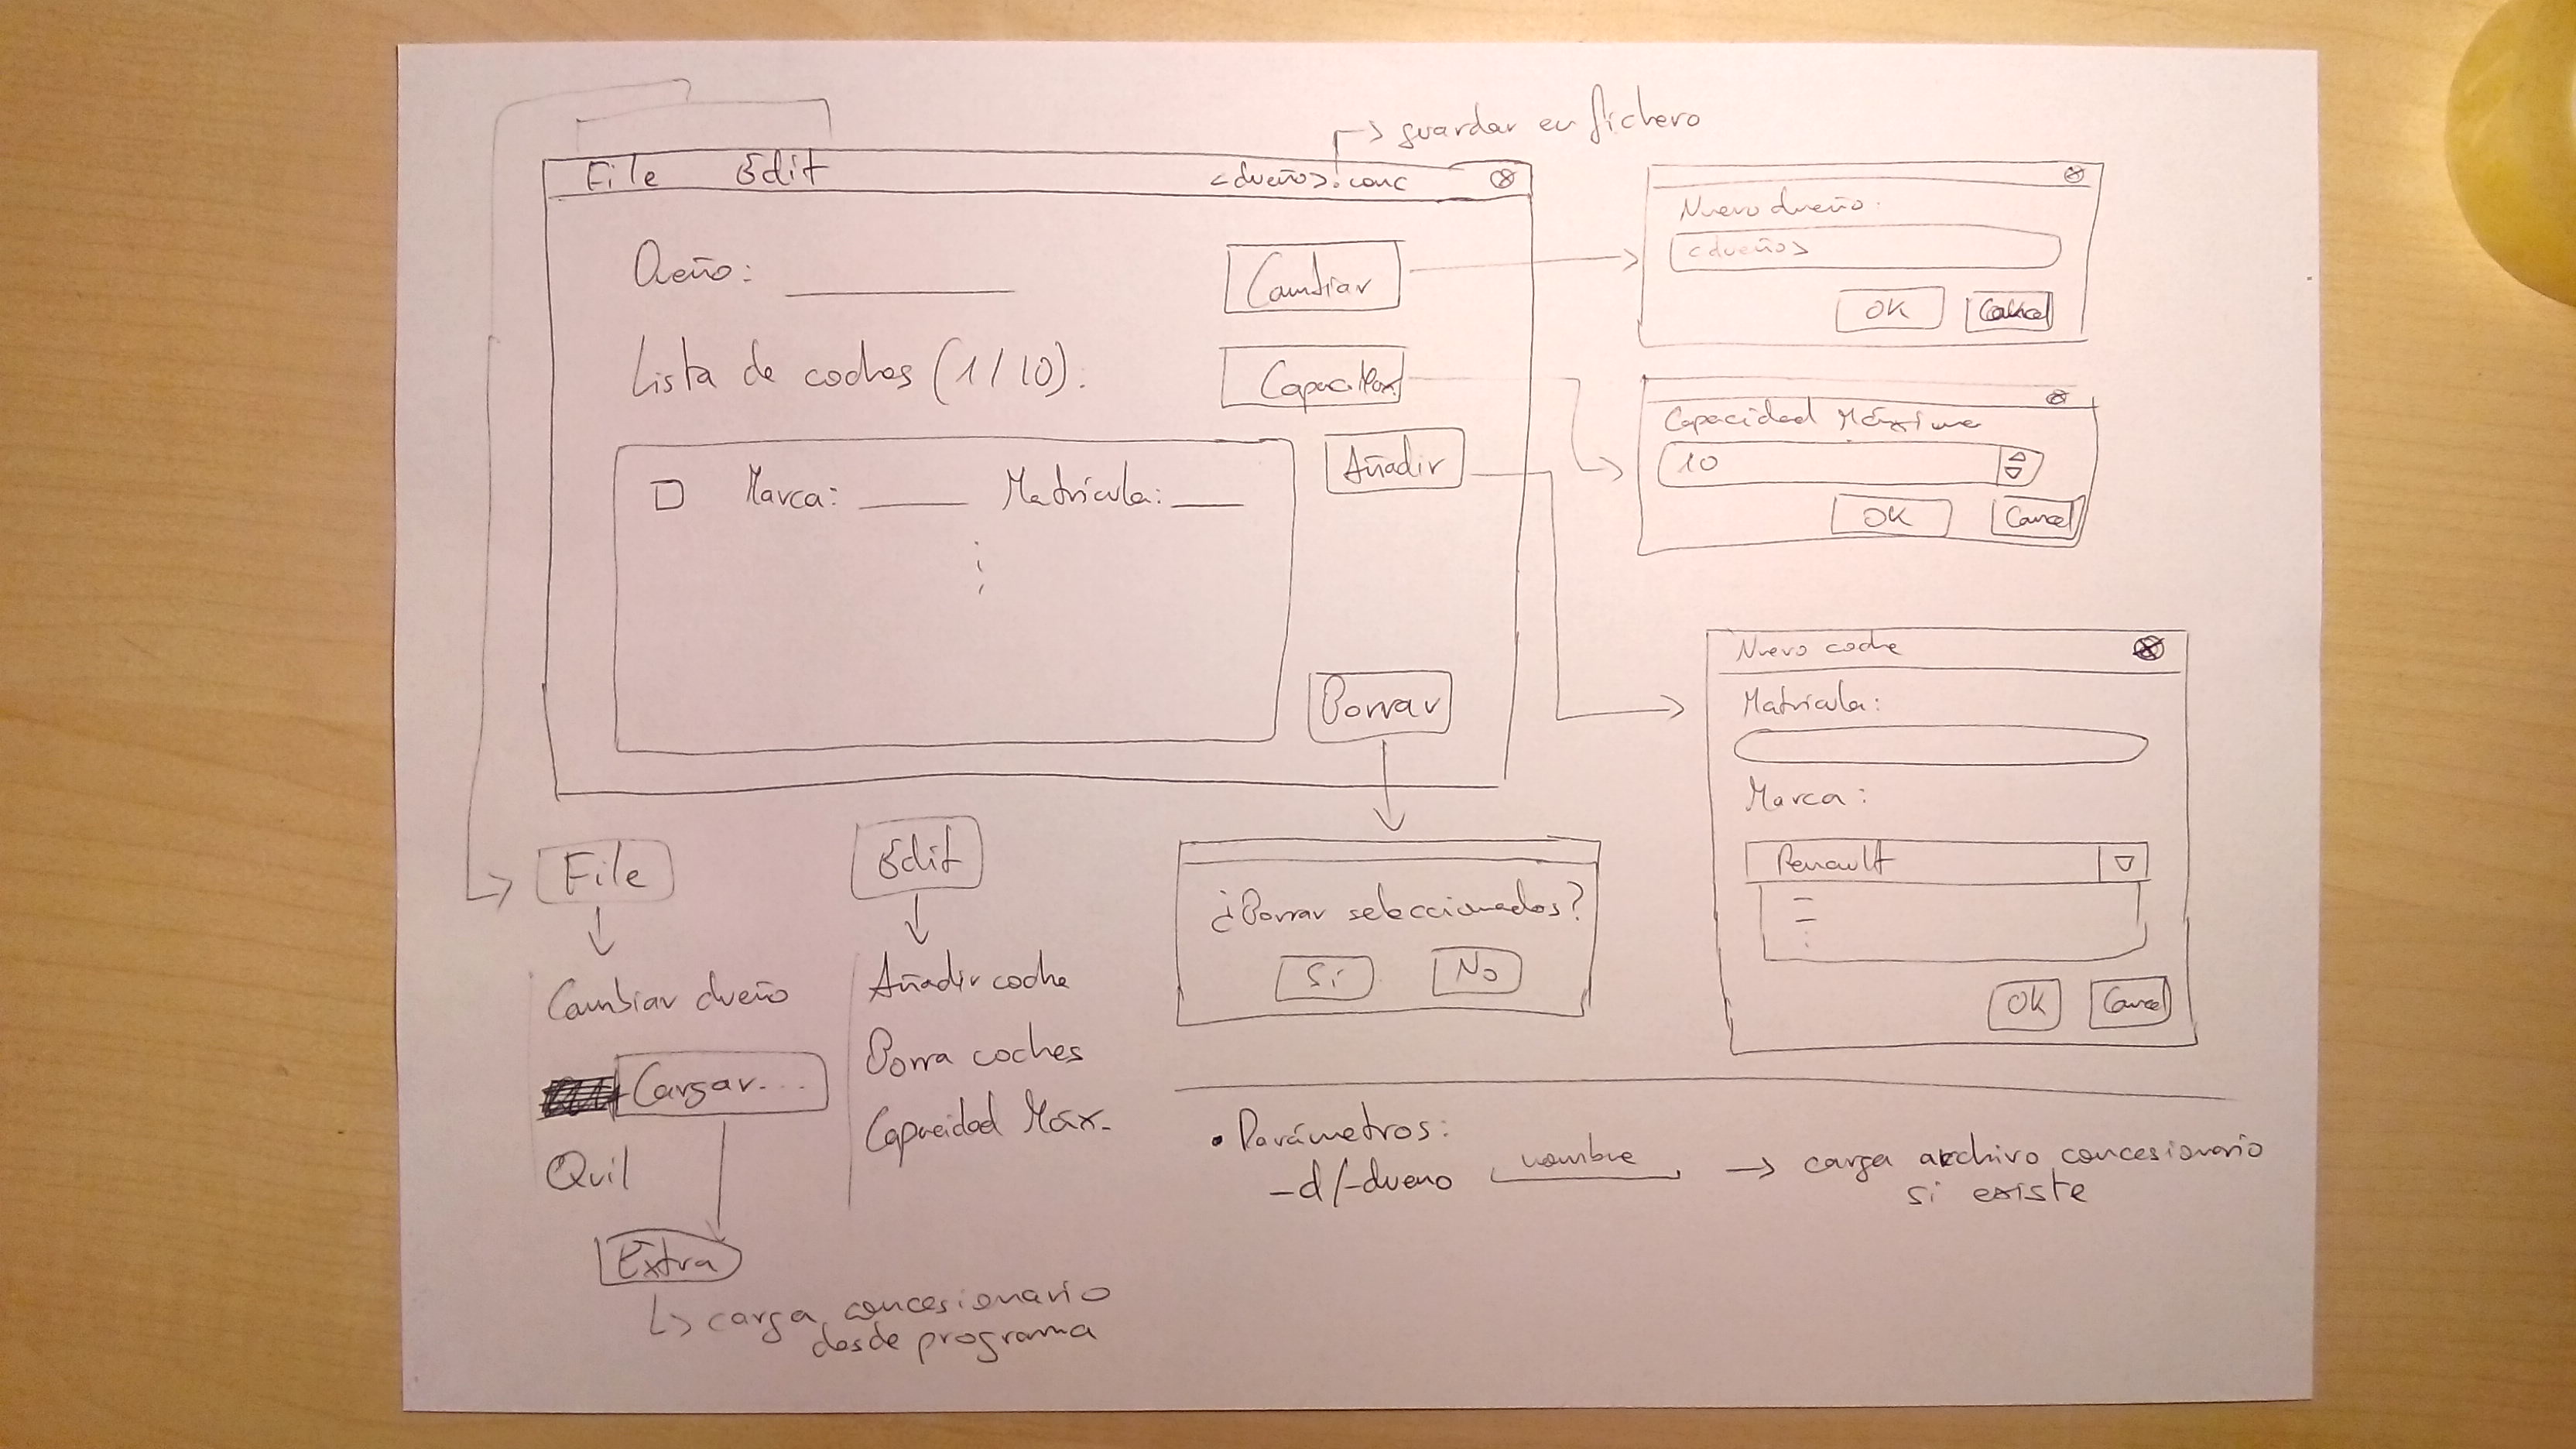 → guardar en fichero
File Edit <dueño>.conc
Dueño: ______
Cambiar
Lista de coches (1/10):
Capaci.Max
Añadir
Marca: ____ Matrícula: ___
Borrar
Nuevo dueño:
<dueño>
OK Cancel
Capacidad Máxima
10
OK Cancel
Nuevo coche
Matrícula:
Marca:
Renault
OK Cancel
¿Borrar seleccionados?
Sí No
File
Cambiar dueño
Cargar...
Quit
Extra
↳ carga concesionario
desde programa
Edit
Añadir coche
Borra coches
Capacidad Máx.
• Parámetros:
-d/-dueno nombre → carga archivo concesionario
si existe